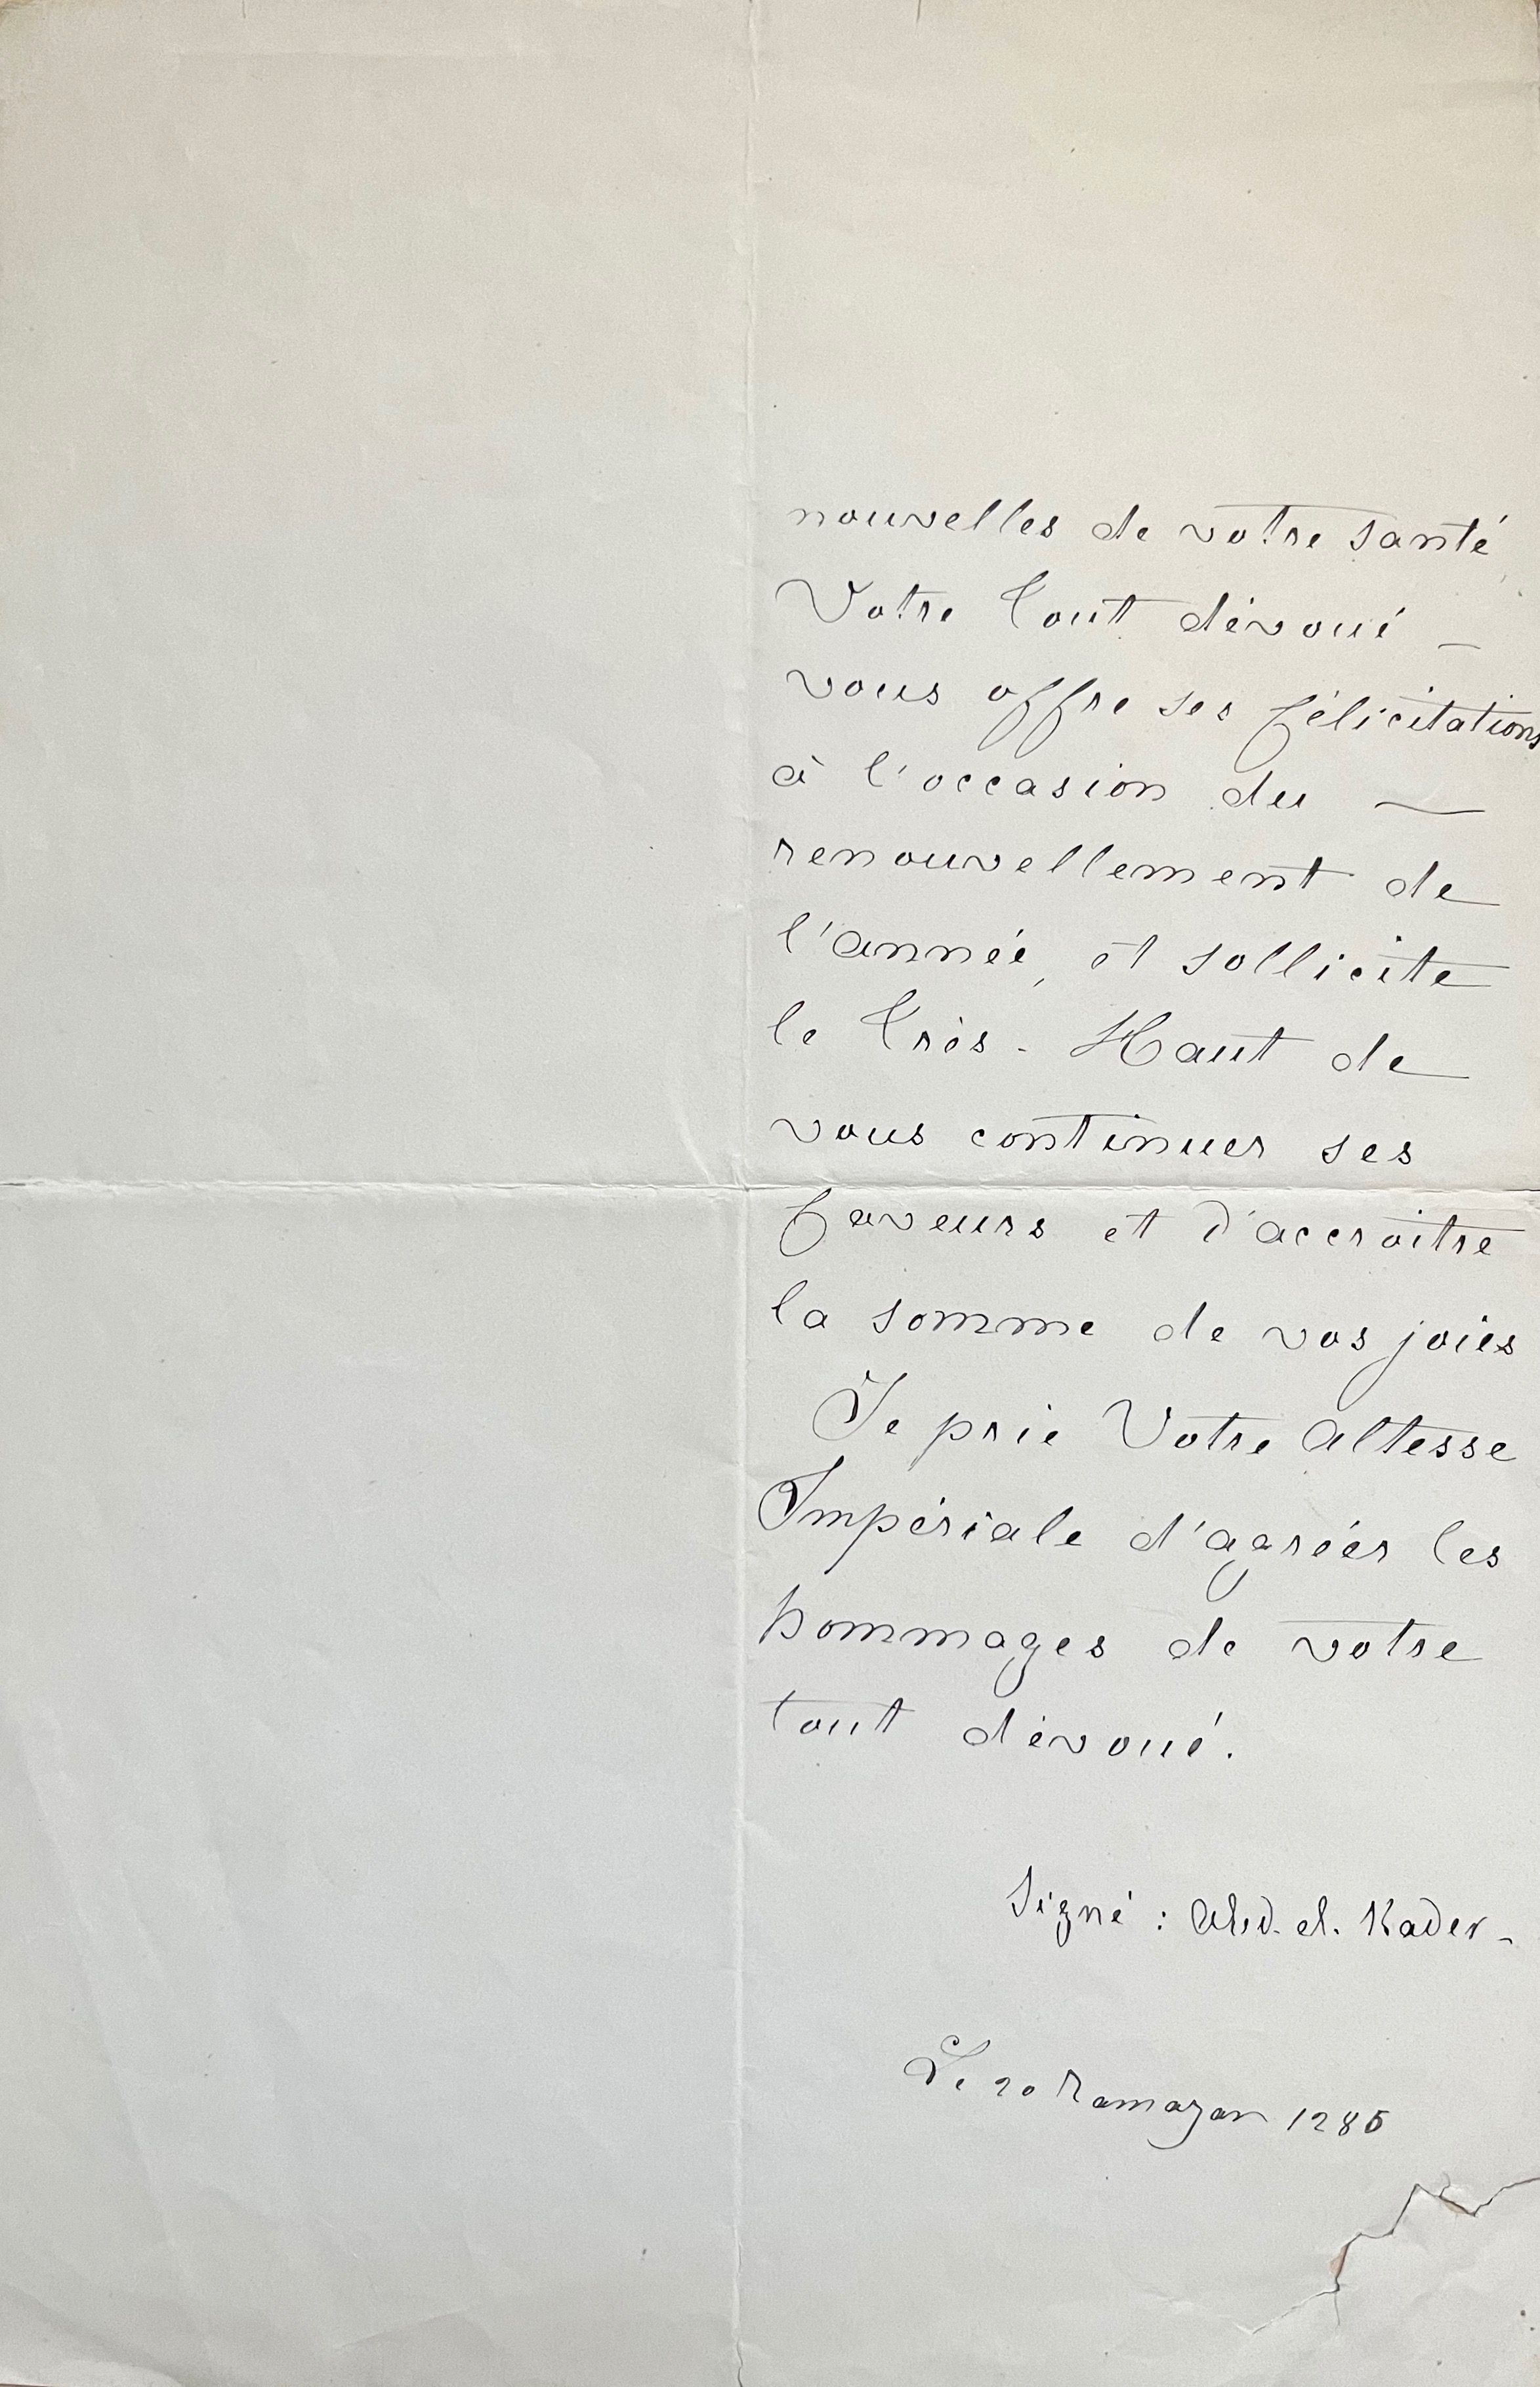 nouvelles de votre santé,
Votre tout dévoué —
vous offre ses félicitations
à l'occasion du —
renouvellement de
l'année, et sollicite
le Très-Haut de
vous continuer ses
faveurs et d'accroître
la somme de vos joies
Je prie Votre Altesse
Impériale d'agréer les
hommages de votre
tout dévoué.
Signé : Abd-el-Kader-
Le 20 Ramazan 1285